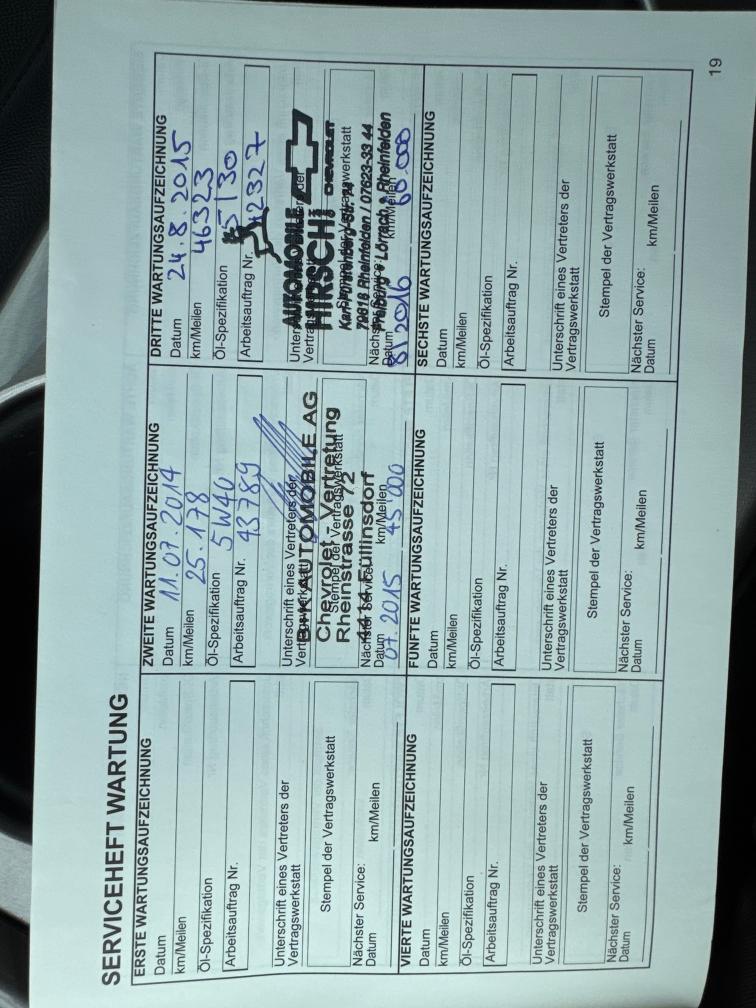 SERVICEHEFT WARTUNG
ERSTE WARTUNGSAUFZEICHNUNG
Datum
km/Meilen
Öl-Spezifikation
Arbeitsauftrag Nr.
Unterschrift eines Vertreters der
Vertragswerkstatt
Stempel der Vertragswerkstatt
Nächster Service:
Datum km/Meilen
ZWEITE WARTUNGSAUFZEICHNUNG
Datum 11.07.2014
km/Meilen 25.178
Öl-Spezifikation 5W40
Arbeitsauftrag Nr. 43789
Unterschrift eines Vertreters der
Vertragswerkstatt
AUTOMOBILE AG
Chevrolet - Vertretung
Stempel der Vertragswerkstatt
Rheinstrasse 72
4414 Füllinsdorf
Nächster Service:
Datum km/Meilen
07.2015 45'000
DRITTE WARTUNGSAUFZEICHNUNG
Datum 24.8.2015
km/Meilen 46323
Öl-Spezifikation 5/30
Arbeitsauftrag Nr. 42327
AUTOMOBILE
HIRSCH
CHEVROLET
79618 Rheinfelden / 07623-33 44
Freiburg • Lörrach • Rheinfelden
Nächster Service:
Datum km/Meilen
8/2016 60.000
VIERTE WARTUNGSAUFZEICHNUNG
Datum
km/Meilen
Öl-Spezifikation
Arbeitsauftrag Nr.
Unterschrift eines Vertreters der
Vertragswerkstatt
Stempel der Vertragswerkstatt
Nächster Service:
Datum km/Meilen
FÜNFTE WARTUNGSAUFZEICHNUNG
Datum
km/Meilen
Öl-Spezifikation
Arbeitsauftrag Nr.
Unterschrift eines Vertreters der
Vertragswerkstatt
Stempel der Vertragswerkstatt
Nächster Service:
Datum km/Meilen
SECHSTE WARTUNGSAUFZEICHNUNG
Datum
km/Meilen
Öl-Spezifikation
Arbeitsauftrag Nr.
Unterschrift eines Vertreters der
Vertragswerkstatt
Stempel der Vertragswerkstatt
Nächster Service:
Datum km/Meilen
19